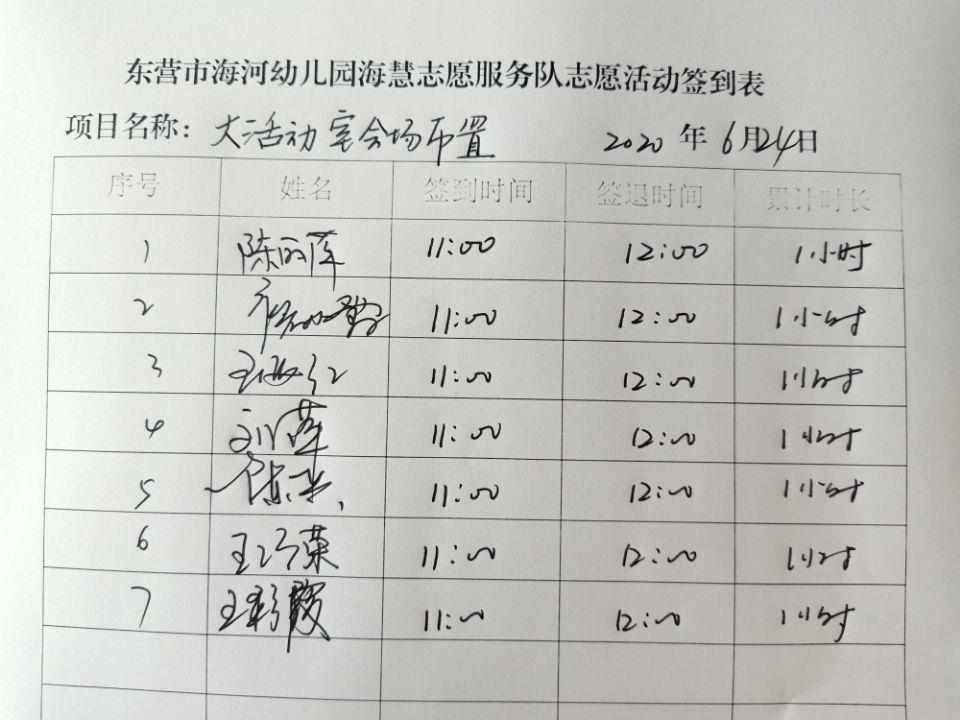 东营市海河幼儿园海慧志愿服务队志愿活动签到表
项目名称：大活动室会场布置 2020年6月24日
序号 姓名 签到时间 签退时间 累计时长
1 陈丽萍 11:00 12:00 1小时
2 11:00 12:00 1小时
3 王淑红 11:00 12:00 1小时
4 刘萍 11:00 12:00 1小时
5 11:00 12:00 1小时
6 11:00 12:00 1小时
7 王彩霞 11:00 12:00 1小时